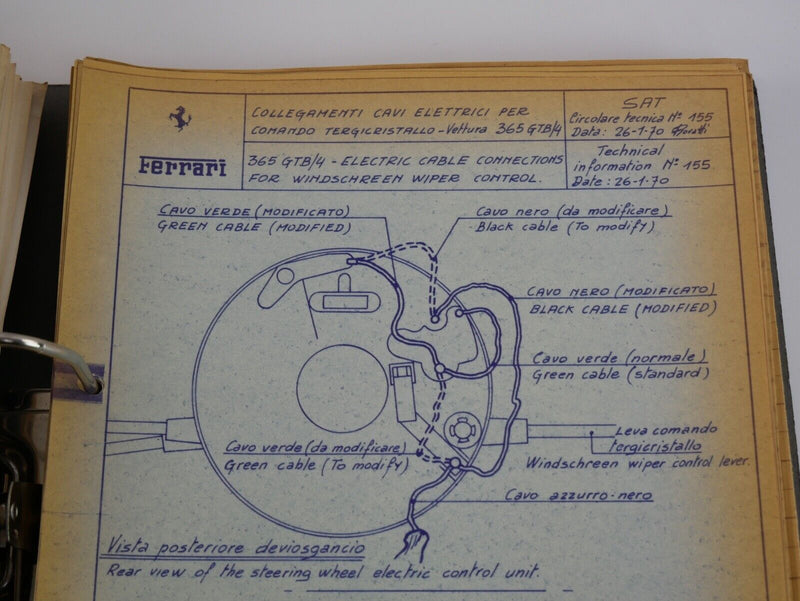 Ferrari
COLLEGAMENTI CAVI ELETTRICI PER
COMANDO TERGICRISTALLO - Vettura 365 GTB/4
365 GTB/4 - ELECTRIC CABLE CONNECTIONS
FOR WINDSCHREEN WIPER CONTROL.
SAT
Circolare tecnica N° 155
Data: 26-1-70
Technical
information N° 155.
Date: 26-1-70
CAVO VERDE (MODIFICATO)
GREEN CABLE (MODIFIED)
Cavo nero (da modificare)
Black cable (To modify)
CAVO NERO (MODIFICATO)
BLACK CABLE (MODIFIED)
Cavo verde (normale)
Green cable (standard)
Leva comando
tergicristallo
Windschreen wiper control lever.
Cavo verde (da modificare)
Green cable (To modify)
Cavo azzurro-nero
Vista posteriore deviosgancio
Rear view of the steering wheel electric control unit.